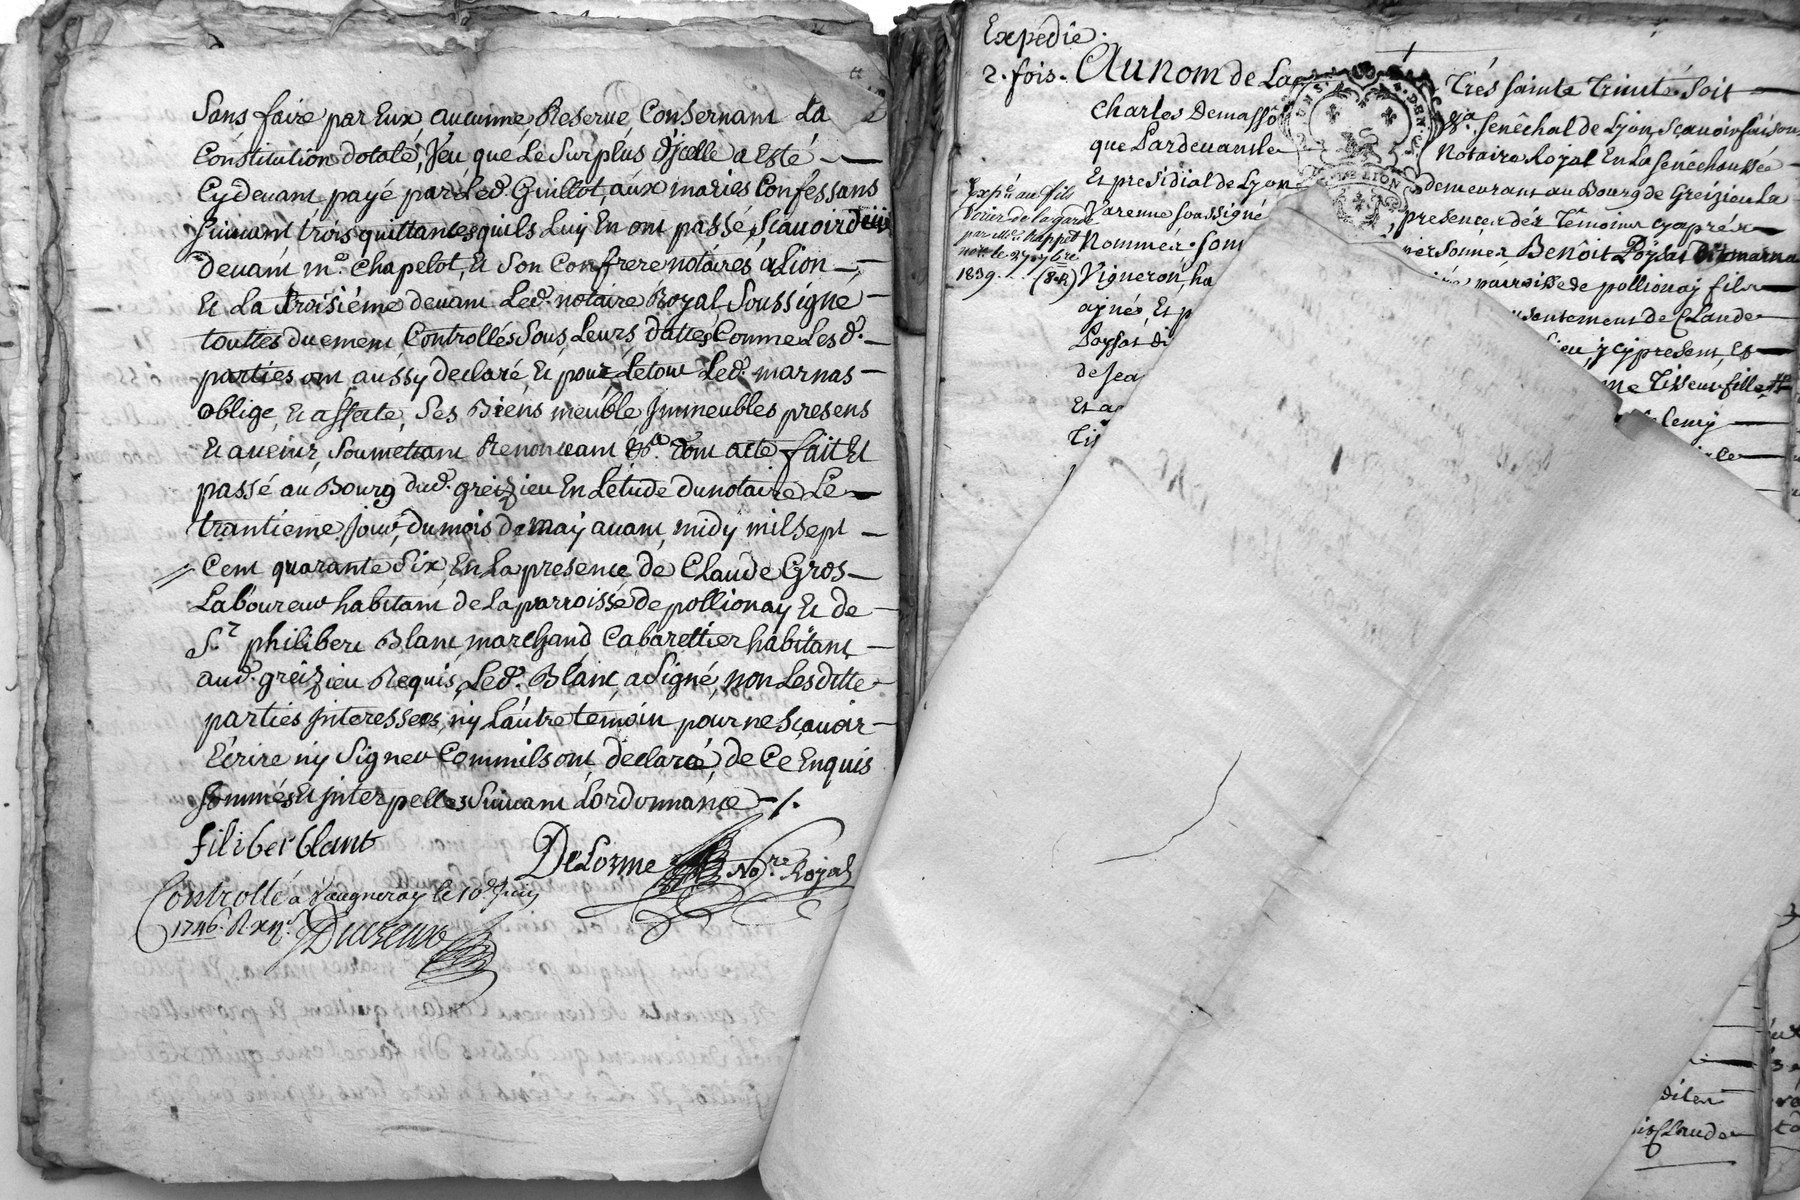 Sans faire par Eux aucunne Reserve Consernant La
Constitution dotale, Jeu que Le Surplus d'jcelle a Esté
Cydevant payé par Led. Guillot, aux maries Confessans
Suivant trois quittances quils Luy En ont passé, Sçauoir deux
devant me. Chapelot, Et Son Confrere notaires a Lion
Et La troisiéme devant Led. notaire Royal Soussigné
touttes duement Controllés Sous Leurs dattes Comme Lesd.
parties ont aussy declaré, Et pour Letout Led. marnas
oblige, Et affecte, Ses Biens meuble Jmmeubles presens
Et avenir, Soumettant Renonceant &a. dont acte fait Et
passé au Bourg dud. greizieu En L'etude du notaire Le
trantieme Jour, du mois de may avant midy mil Sept
Cent quarante Six, En La presence de Claude Gros
Laboureur habitant de La parroisse de pollionay Et de
Sr philibert Blanc marchand Cabarettier habitant
aud. greizieu Requis, Led. Blanc, a Signé, non Lesditte
parties Jnteressees, ny L'autre temoin pour ne Sçavoir
Ecrire ny Signer Comm'ils ont declaré, de Ce Enquis
Sommés Et Jnterpelles Suivant L'ordonnance -/.
filiber blanc
DeLorme Nore Royal
Controllé à Vaugneray le 10e Juin
1746. R
Expedie.
2. fois. Au nom de La Trés Sainte Trinité Soit
Charles Demasso Sénéchal de Lyon, Sçavoir faisons
que Pardevant Le Notaire Royal En La Sénéchaussée
Et presidial de Lyon demeurant au Bourg de Greizieu La
Varenne Soussigné presence des Témoins cyaprés
Nommér. Benoît Poysat Dit marna
Vigneron, ha parroisse de pollionay fils
ajnér Et p de Claude
Poysat di jcy present, Et
de Jea Tisseur fille
Et a
Expé. au fils
par Me. happet
not. le 27
1839.
Claude